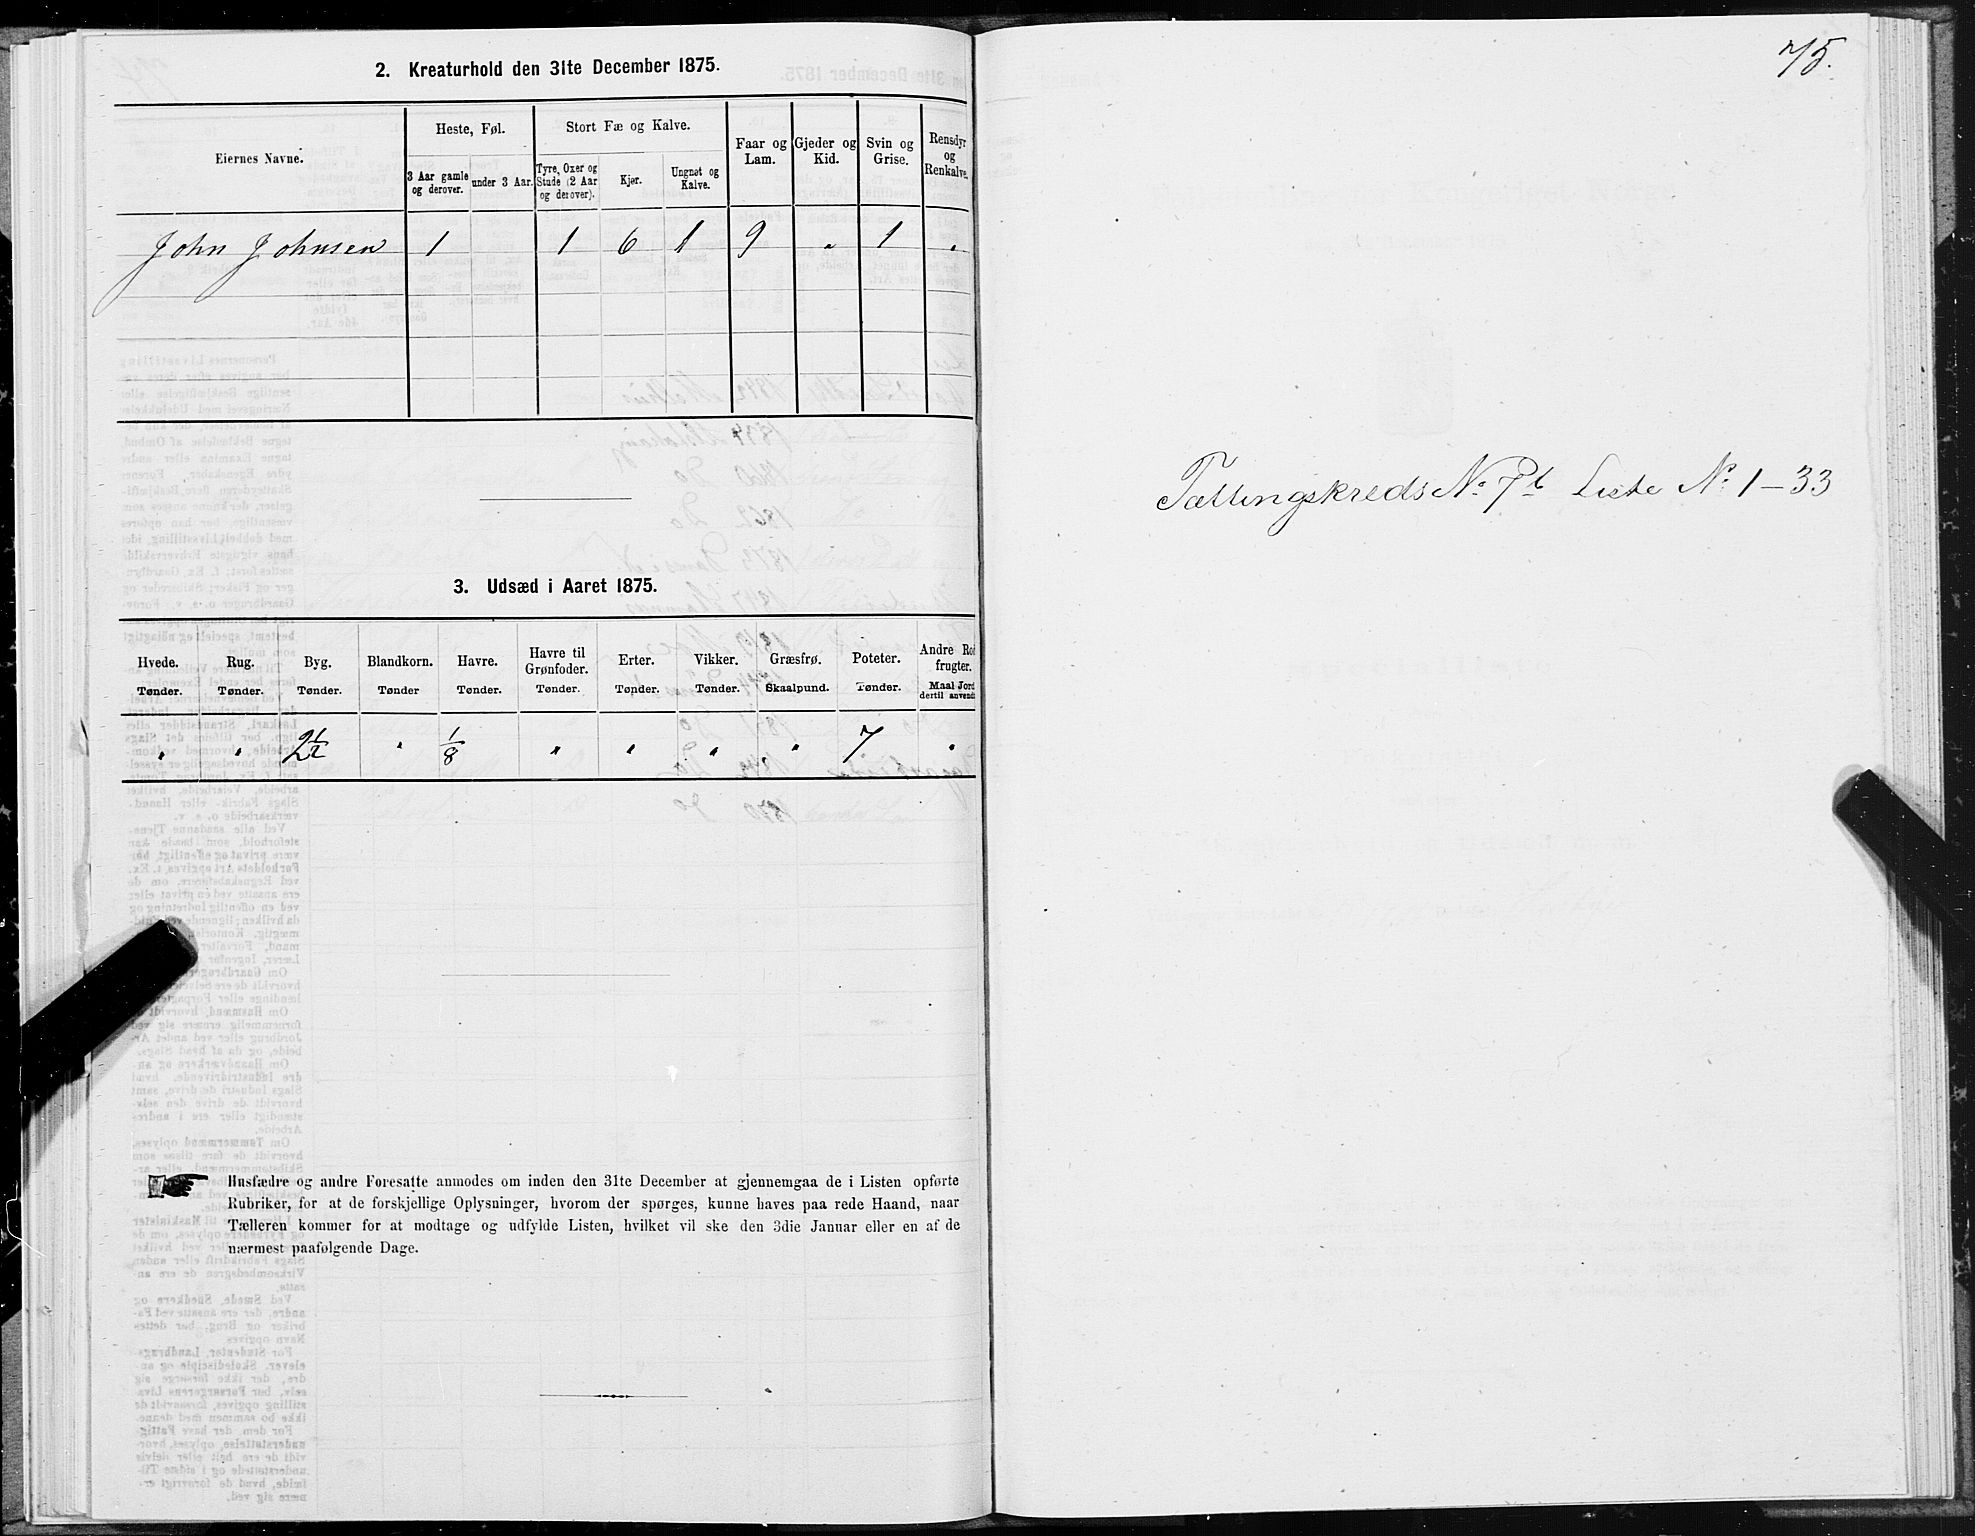 2. Kreaturhold den 31te December 1875.
Eiernes Navne.
Heste, Føl.
Stort Fæ og Kalve.
Faar og Lam.
Gjeder og Kid.
Svin og Grise.
Rensdyr og Renkalve.
3 Aar gamle og derover.
under 3 Aar.
Tyre, Oxer og Stude (2 Aar og derover).
Kjør.
Ungnøt og Kalve.
John Johnsen 1 1 6 1 9 " 1 "
3. Udsæd i Aaret 1875.
Hvede. Rug. Byg. Blandkorn. Havre. Havre til Grønfoder. Erter. Vikker. Græsfrø. Poteter. Andre Rodfrugter.
Tønder. Tønder. Tønder. Tønder Tønder. Tønder. Tønder. Tønder. Skaalpund. Tønder. Maal Jord dertil anvendt
" " 2 1/2 " 1/8 " " " " 7 "
Husfædre og andre Foresatte anmodes om inden den 31te December at gjennemgaa de i Listen opførte
Rubriker, for at de forskjellige Oplysninger, hvorom der spørges, kunne haves paa rede Haand, naar
Tælleren kommer for at modtage og udfylde Listen, hvilket vil ske den 3die Januar eller en af de
nærmest paafølgende Dage.
75.
Tællingskreds No 7b Liste No 1-33